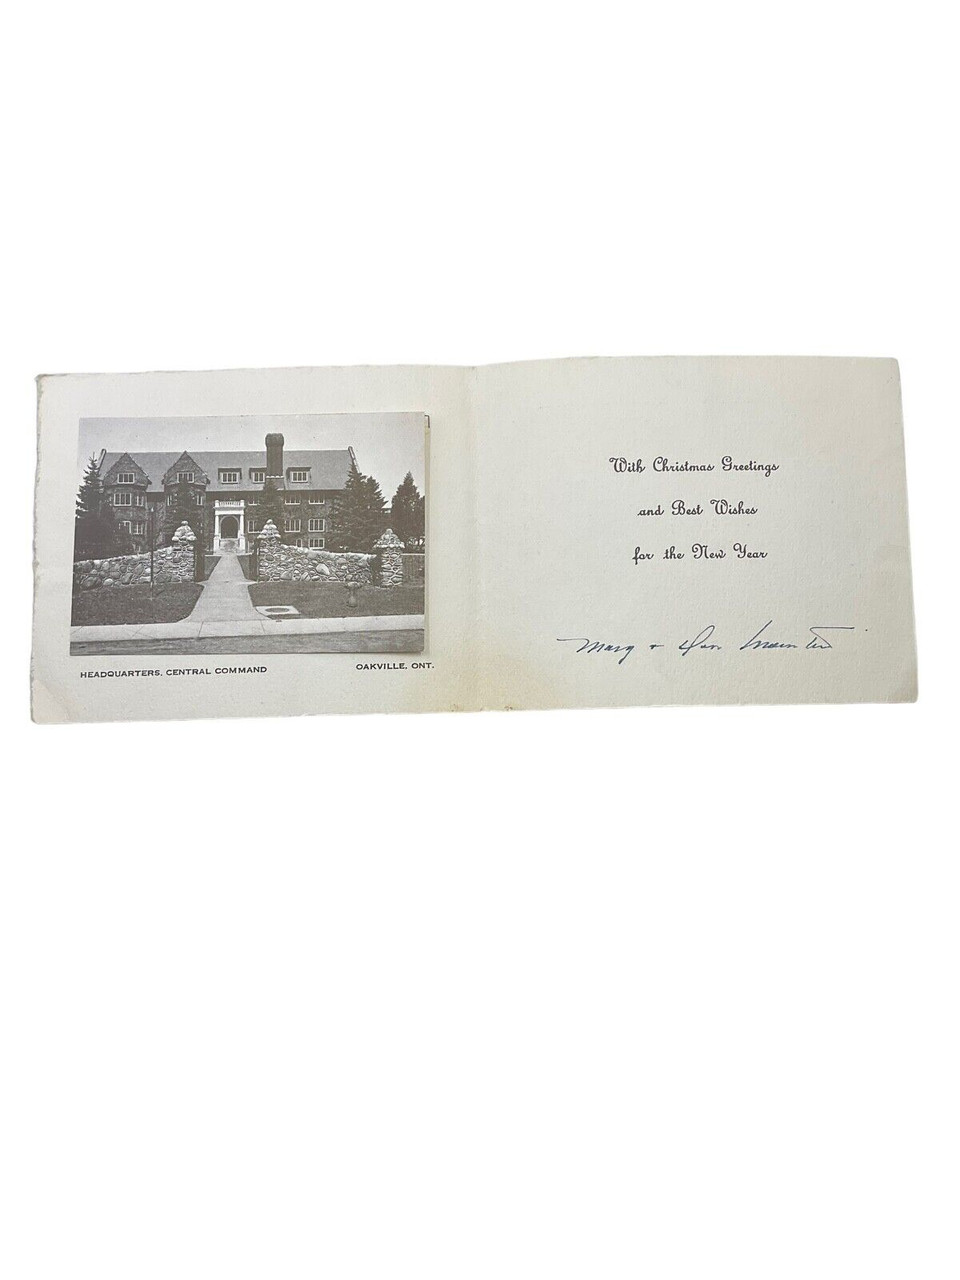 HEADQUARTERS, CENTRAL COMMAND
OAKVILLE, ONT.
With Christmas Greetings
and Best Wishes
for the New Year
Mary + Don